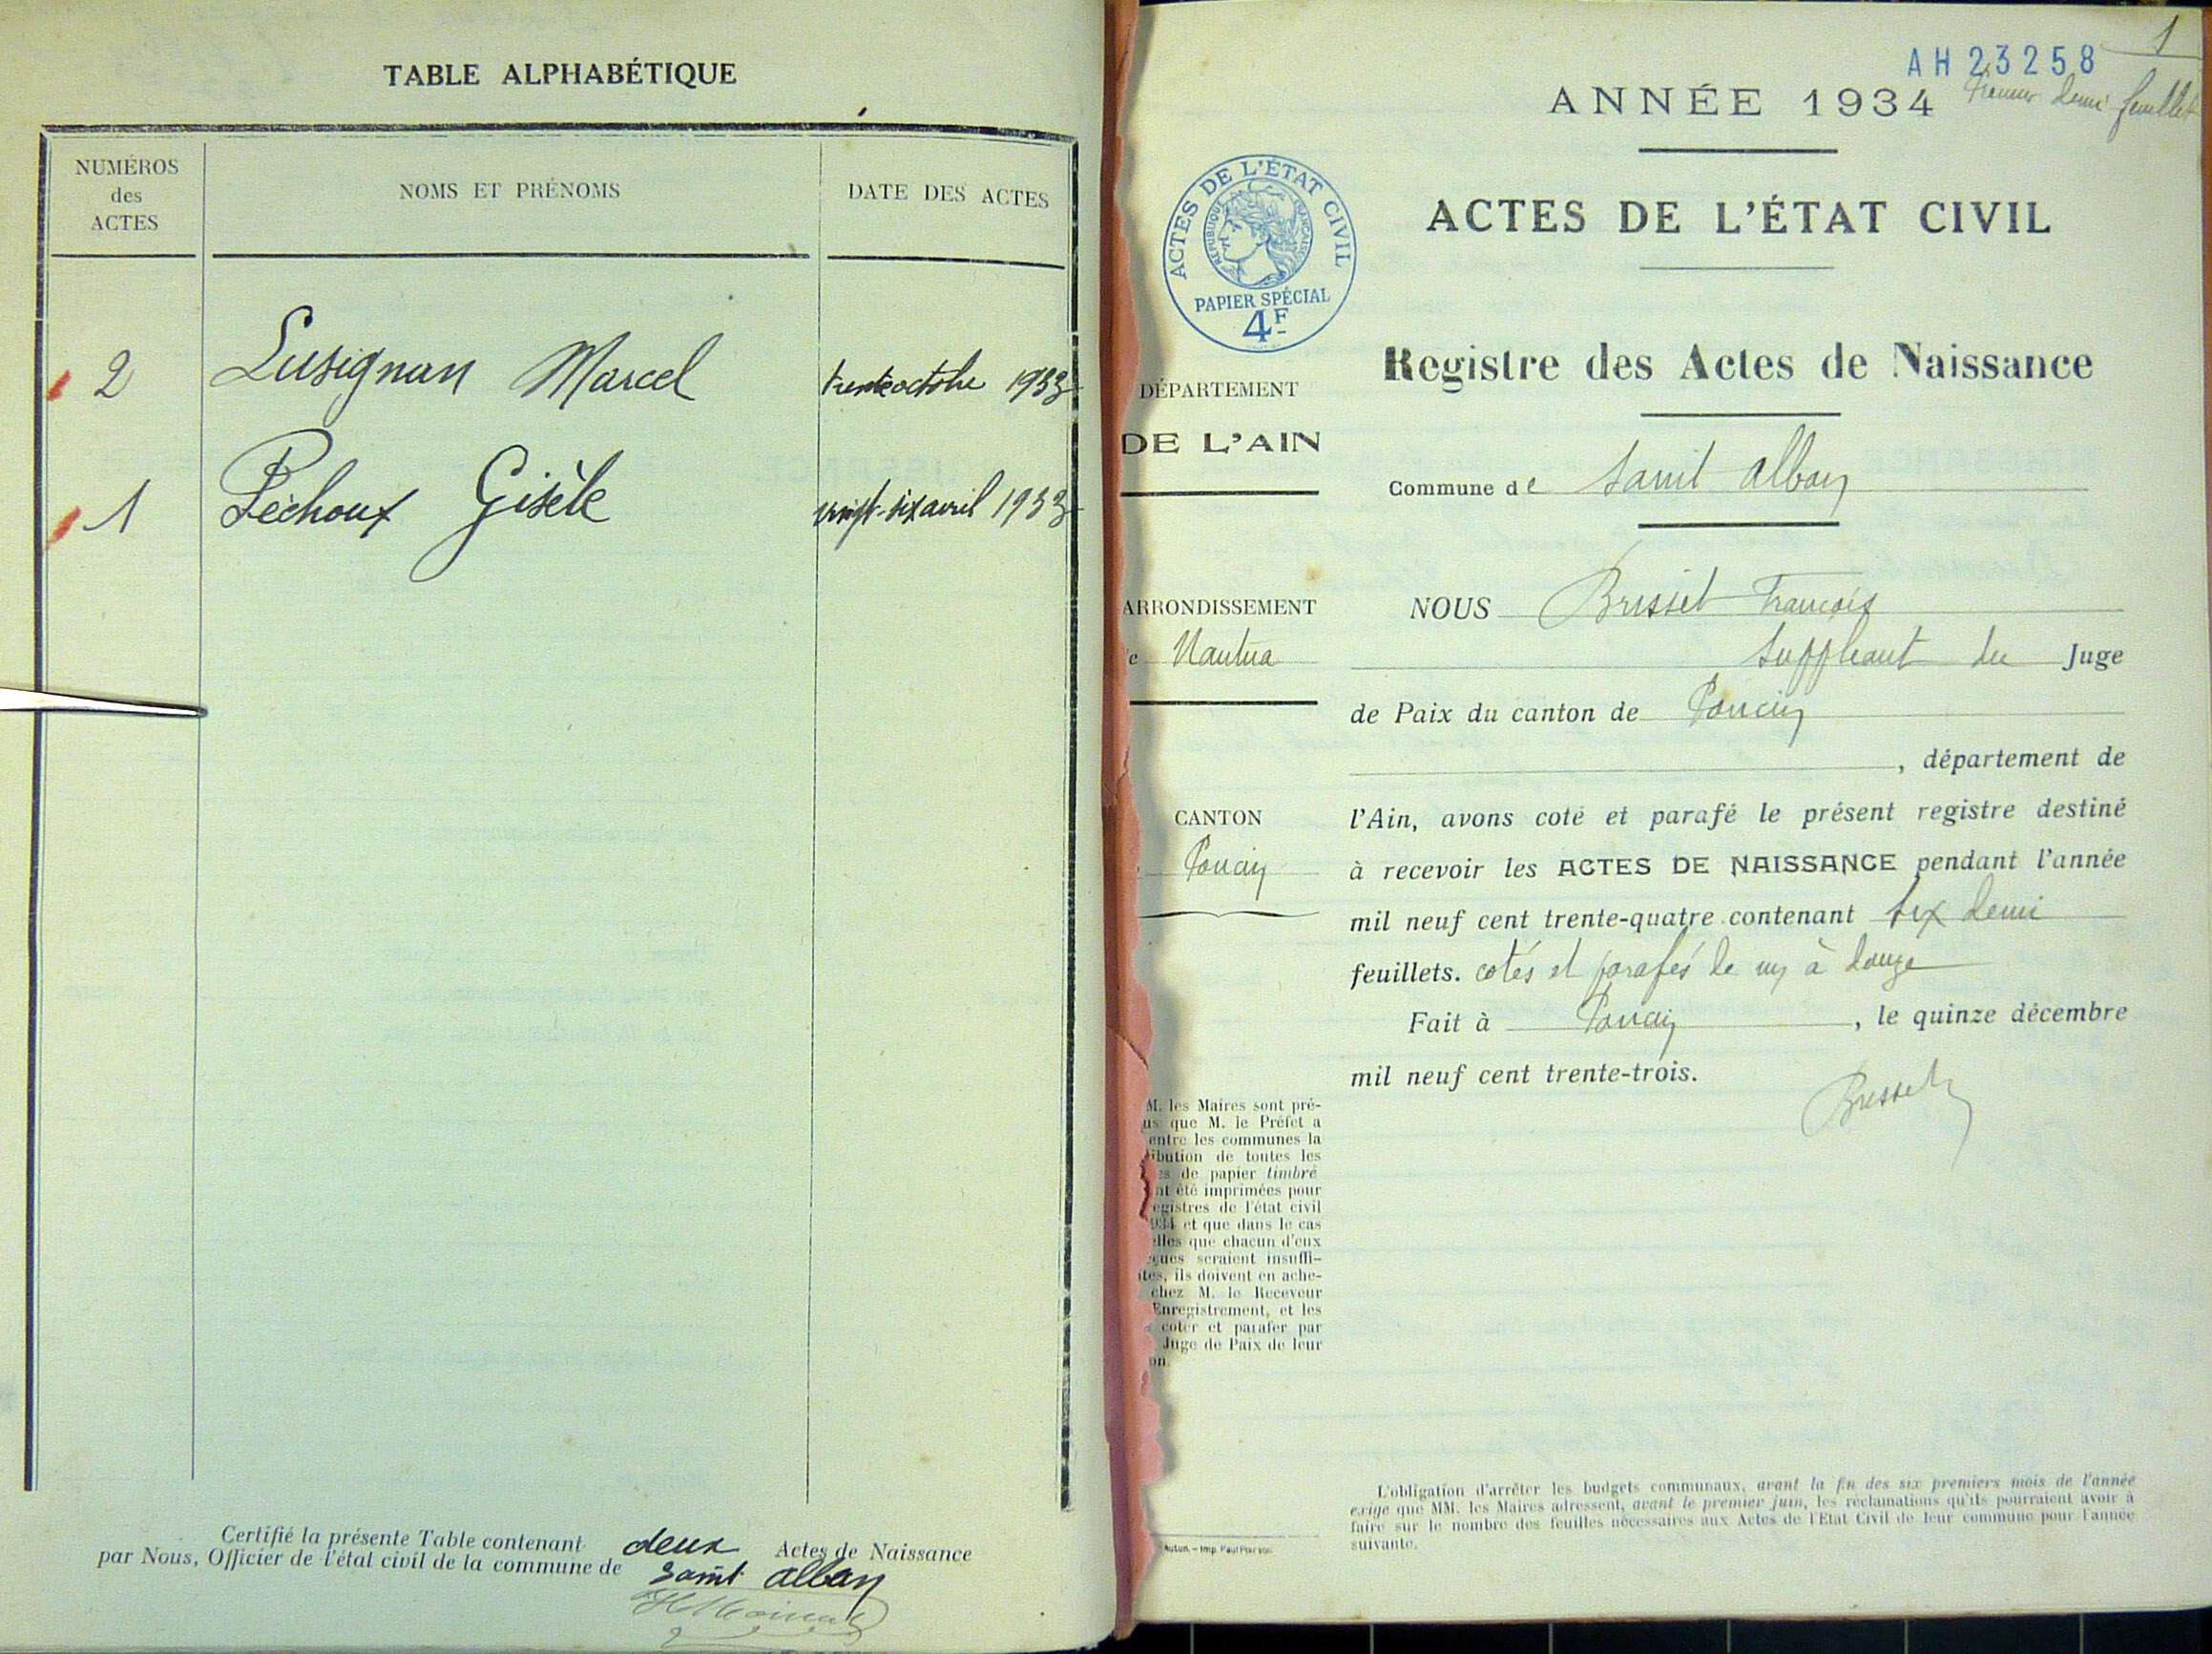 TABLE ALPHABÉTIQUE
NUMÉROS
des
ACTES
NOMS ET PRÉNOMS
DATE DES ACTES
2 Lusignan Marcel trente octobre 1933
1 Péchoux Gisèle vingt-six avril 1933
Certifié la présente Table contenant deux Actes de Naissance
par Nous, Officier de l'état civil de la commune de Saint Alban
1
AH 23258
Premier demi feuillet
ANNÉE 1934
ACTES DE L'ÉTAT CIVIL
ACTES DE L'ÉTAT CIVIL
RÉPUBLIQUE FRANÇAISE
PAPIER SPÉCIAL
4F
Registre des Actes de Naissance
DÉPARTEMENT
DE L'AIN
Commune de Saint Alban
ARRONDISSEMENT
e Nantua
CANTON
Poncin
NOUS Brisset François
suppléant du Juge
de Paix du canton de Poncin
, département de
l'Ain, avons coté et parafé le présent registre destiné
à recevoir les ACTES DE NAISSANCE pendant l'année
mil neuf cent trente-quatre contenant six demi
feuillets. cotés et parafés de un à douze
Fait à Poncin, le quinze décembre
mil neuf cent trente-trois.
Brisset
M. les Maires sont pré-
us que M. le Préfet a
entre les communes la
ibution de toutes les
es de papier timbré
nt été imprimées pour
egistres de l'état civil
934 et que dans le cas
elles que chacun d'eux
eçues seraient insuffi-
tes, ils doivent en ache-
chez M. le Receveur
Enregistrement, et les
coter et parafer par
Juge de Paix de leur
on.
L'obligation d'arrêter les budgets communaux, avant la fin des six premiers mois de l'année
exige que MM. les Maires adressent, avant le premier juin, les réclamations qu'ils pourraient avoir à
faire sur le nombre des feuilles nécessaires aux Actes de l'Etat Civil de leur commune pour l'année
suivante.
Autun. – Imp. Paul